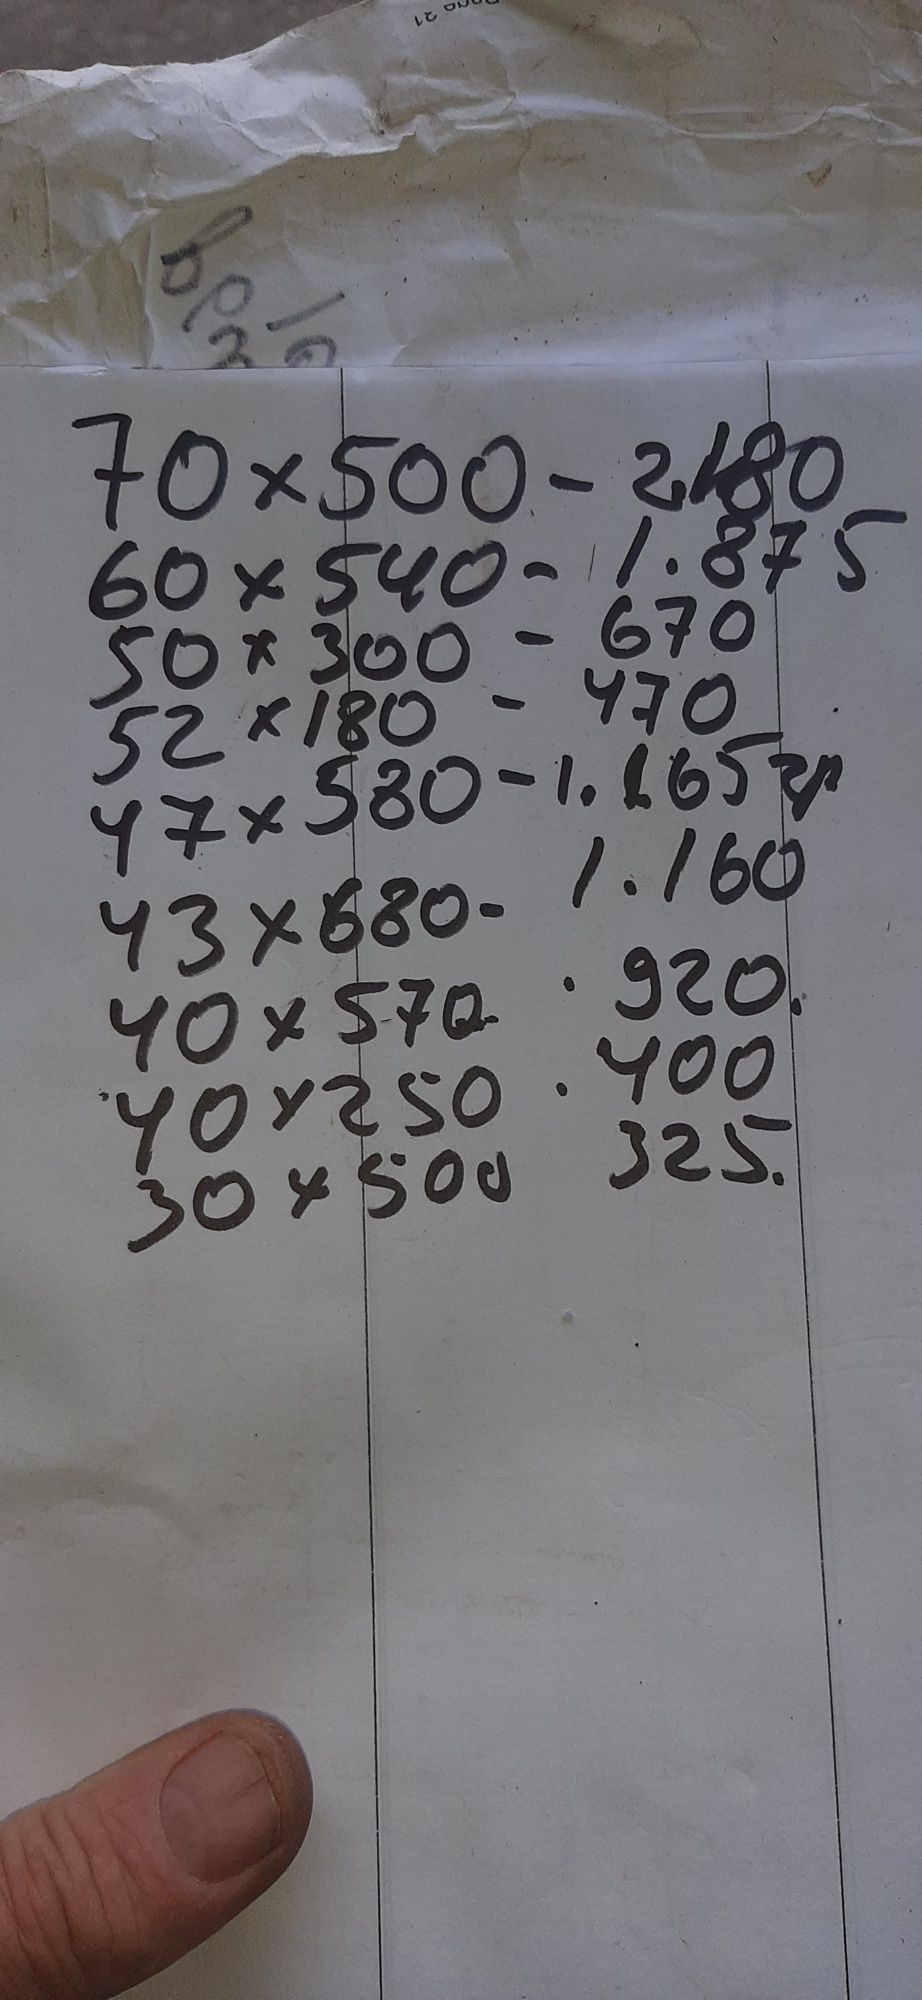 Page 21
70 x 500 - 2180
60 x 540 - 1.875
50 x 300 - 670
52 x 180 - 470
47 x 580 - 1.165 гр
43 x 680 - 1.160
40 x 570 . 920.
40 x 250 . 400
30 x 500 325.